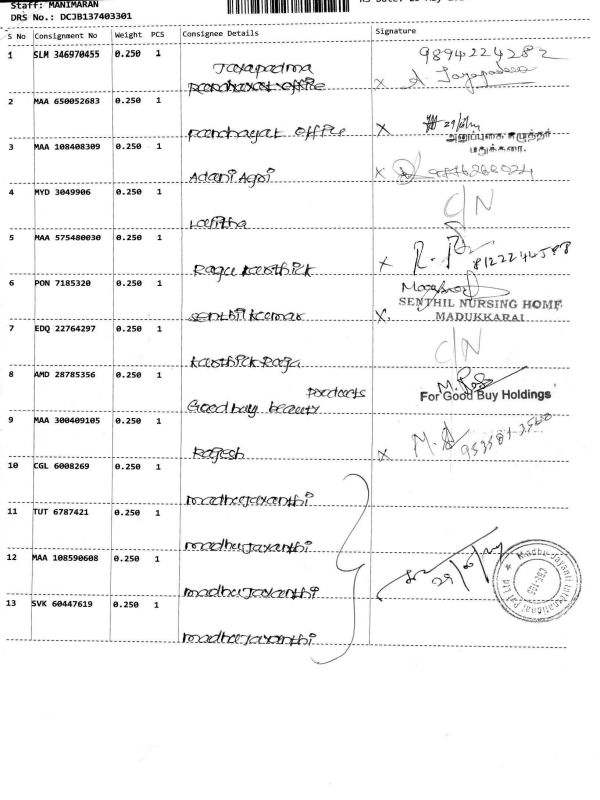 Staff: MANIMARAN
DRS No.: DCJB137403301
S No Consignment No Weight PCS Consignee Details Signature
1 SLM 346970455 0.250 1 Jayapadma 9894224282
panchayat office x A. Jayapadma
2 MAA 650052683 0.250 1
panchayat office x
அனுப்புகை எழுத்தர்
மதுக்கரை.
3 MAA 108408309 0.250 1
Adani Agri x
4 MYD 3049906 0.250 1 C/N
Lalitha
5 MAA 575480030 0.250 1
Ragu karthick x 8122244588
6 PON 7185320 0.250 1
SENTHIL NURSING HOME
senthil kumar x. MADUKKARAI
7 EDQ 22764297 0.250 1 C/N
karthick Raja
8 AMD 28785356 0.250 1
products For Good Buy Holdings
Good buy beauty
9 MAA 300409105 0.250 1
Rajesh x
10 CGL 6008269 0.250 1
madhu jayanthi
11 TUT 6787421 0.250 1
madhu jayanthi
12 MAA 108590608 0.250 1
madhu jayanthi
Madhu Jayanti International Pvt Ltd
13 SVK 60447619 0.250 1
madhu jayanthi